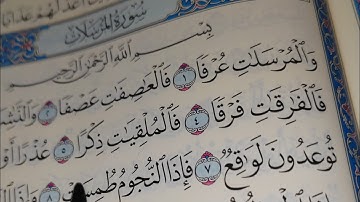 سُورَةُ المُرْسَلَاتِ
بِسْمِ اللَّهِ الرَّحْمَٰنِ الرَّحِيمِ
وَالْمُرْسَلَاتِ عُرْفًا ١ فَالْعَاصِفَاتِ عَصْفًا ٢ وَالنَّاشِ
فَالْفَارِقَاتِ فَرْقًا ٤ فَالْمُلْقِيَاتِ ذِكْرًا ٥ عُذْرًا أَوْ
تُوعَدُونَ لَوَاقِعٌ ٧ فَإِذَا النُّجُومُ طُمِسَتْ ٨ وَإِذَا